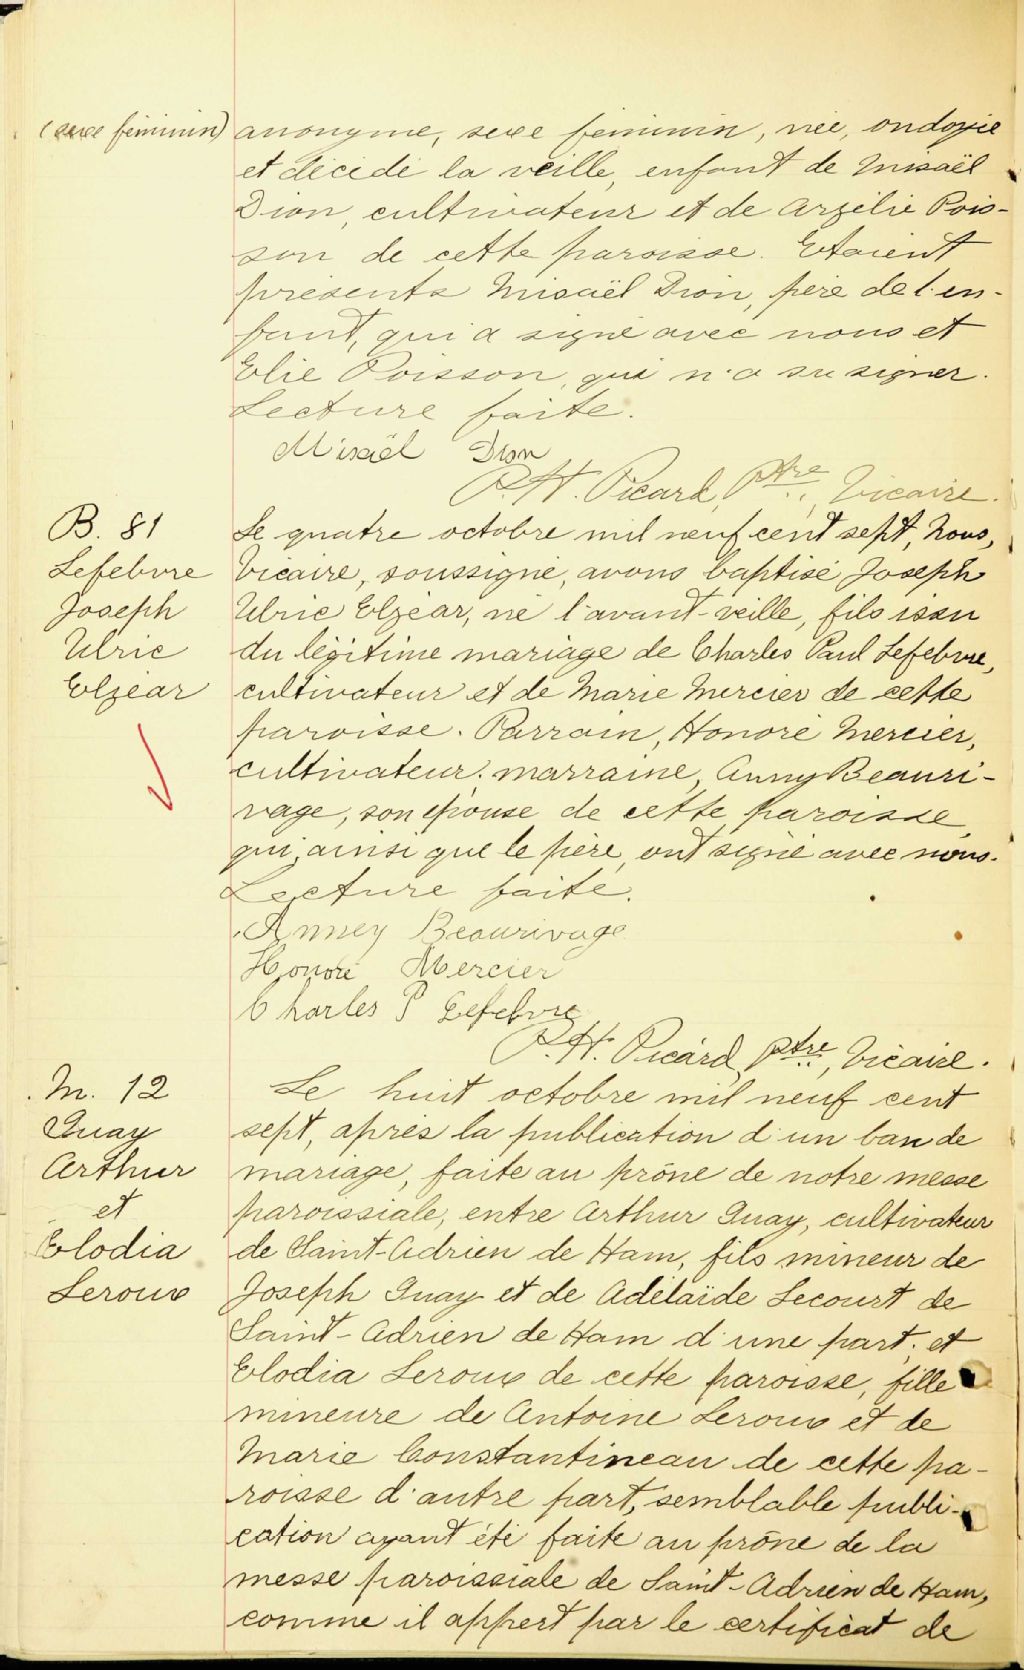 (sexe féminin)
anonyme, sexe féminin, née, ondoyée
et décédé la veille, enfant de Misaël
Dion, cultivateur et de Arzélie Pois-
son de cette paroisse. Etaient
présents Misaël Dion, père de l'en-
fant, qui a signé avec nous et
Elie Poisson, qui n'a su signer.
Lecture faite.
Misaël Dion
P.H. Picard, Ptre, Vicaire.
B. 81
Lefebvre
Joseph
Ulric
Elzéar
Le quatre octobre mil neuf cent sept, Nous,
Vicaire, soussigné, avons baptisé Joseph
Ulric Elzéar, né l'avant-veille, fils issu
du légitime mariage de Charles Paul Lefebvre,
cultivateur et de Marie Mercier de cette
paroisse. Parrain, Honoré Mercier,
cultivateur; marraine, Anny Beauri-
vage, son épouse de cette paroisse,
qui, ainsi que le père, ont signé avec nous.
Lecture faite.
Anney Beaurivage
Honoré Mercier
Charles P Lefebvre
P.H. Picard, Ptre, Vicaire.
M. 12
Guay
Arthur
et
Elodia
Leroux
Le huit octobre mil neuf cent
sept, après la publication d'un ban de
mariage, faite au prône de notre messe
paroissiale, entre Arthur Guay, cultivateur
de Saint-Adrien de Ham, fils mineur de
Joseph Guay et de Adélaïde Lecourt de
Saint-Adrien de Ham d'une part; et
Elodia Leroux de cette paroisse, fille
mineure de Antoine Leroux et de
Marie Constantineau de cette pa-
roisse d'autre part, semblable publi-
cation ayant été faite au prône de la
messe paroissiale de Saint-Adrien de Ham,
comme il appert par le certificat de